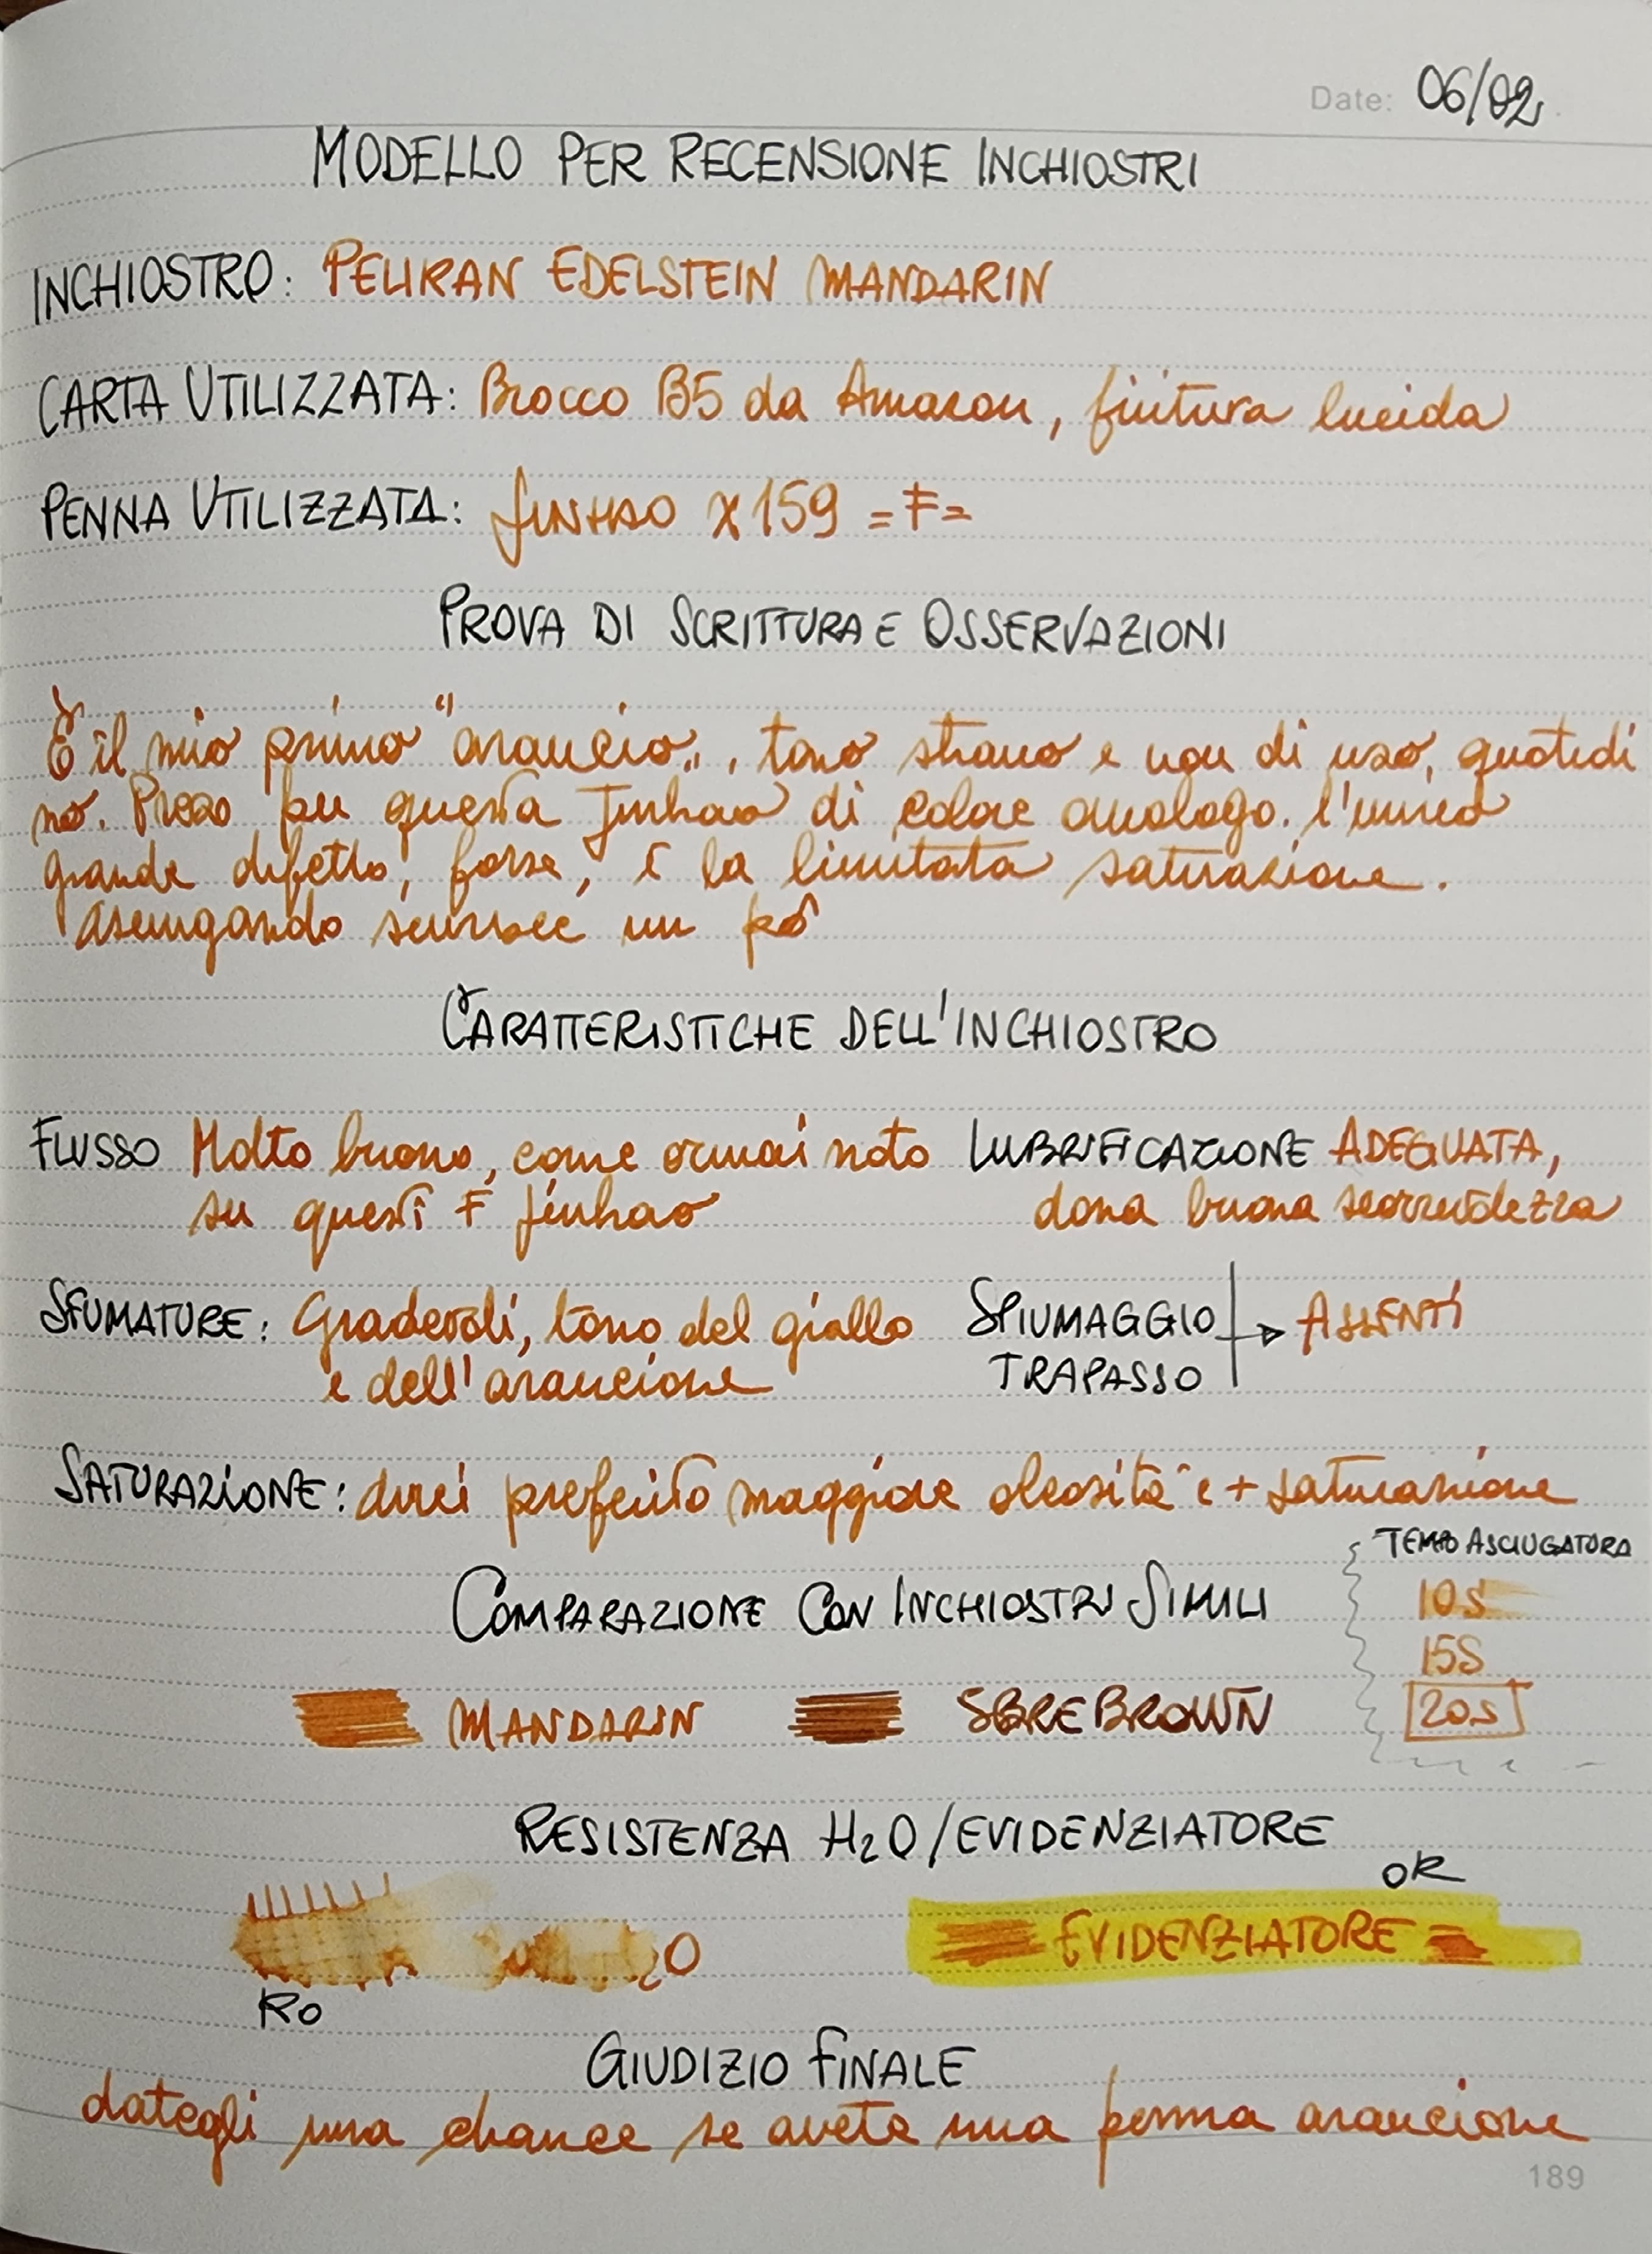 Date: 06/02
MODELLO PER RECENSIONE INCHIOSTRI
INCHIOSTRO: PELIKAN EDELSTEIN MANDARIN
CARTA UTILIZZATA: Blocco B5 da Amazon, finitura lucida
PENNA UTILIZZATA: JINHAO X159 =F=
PROVA DI SCRITTURA E OSSERVAZIONI
È il mio primo "arancio", tono strano e non di uso quotidi
no. Preso per questa Jinhao di colore analogo. l'unico
grande difetto, forse, è la limitata saturazione.
Asciugando scurisce un pó
CARATTERISTICHE DELL'INCHIOSTRO
FLUSSO Molto buono, come ormai noto LUBRIFICAZIONE ADEGUATA,
su questi F Jinhao dona buona scorrevolezza
SFUMATURE: Gradevoli, tono del giallo SPIUMAGGIO → ASSENTI
e dell'arancione TRAPASSO
SATURAZIONE: avrei preferito maggiore oleosità e + saturazione
TEMPO ASCIUGATURA
COMPARAZIONE CON INCHIOSTRI SIMILI 10S
15S
MANDARIN SBREBROWN 20S
RESISTENZA H2O/EVIDENZIATORE
OK
2O EVIDENZIATORE =
KO
GIUDIZIO FINALE
dategli una chance se avete una penna arancione
189